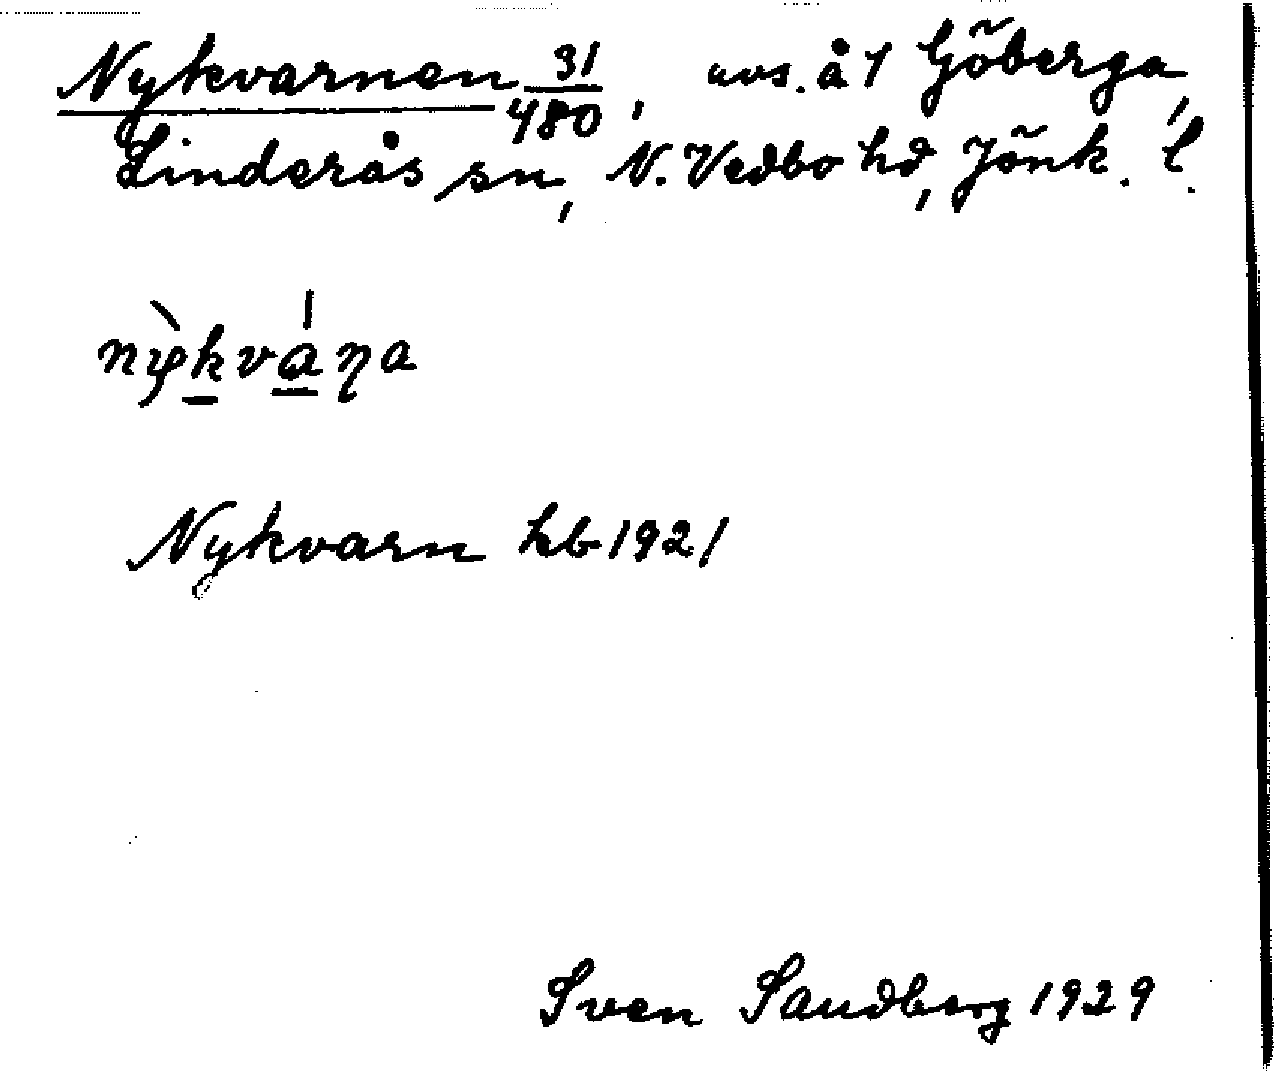 Nykvarnen 31/480, avs. å 1 Göberga,
Linderås sn, N. Vedbo hd, Jönk. l.
nỳkvána
Nykvarn hb 1921
Sven Sandberg 1929